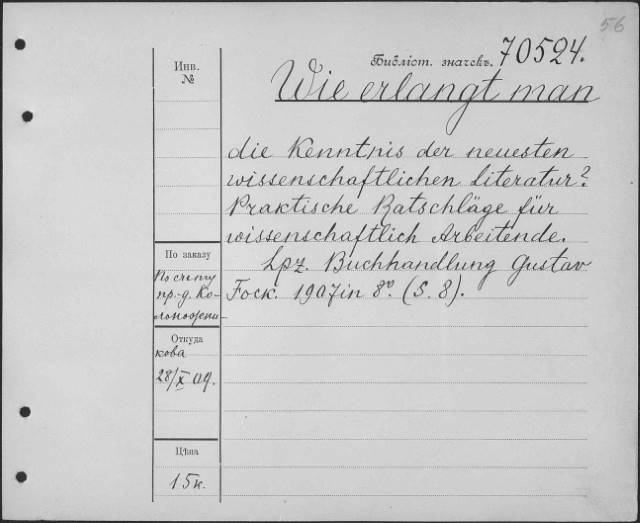 56
Библіот. значекъ. 70524.
Инв.
№
Wie erlangt man
die Kenntnis der neuesten
wissenschaftlichen Literatur?
Praktische Ratschläge für
wissenschaftlich Arbeitende.
Lpz. Buchhandlung Gustav
Fock. 1907 in 8º. (S. 8).
По заказу
По счету
пр.-д. Ко-
Откуда
кова
28/X 09.
Цѣна
15к.